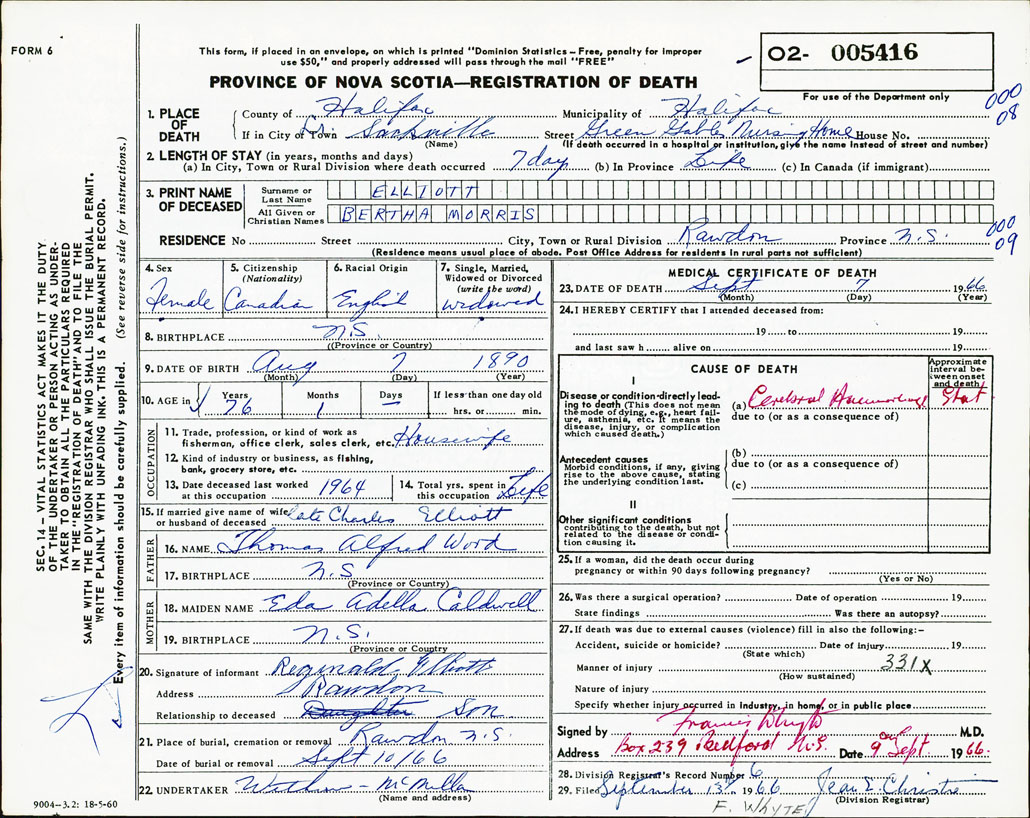 FORM 6
This form, if placed in an envelope, on which is printed "Dominion Statistics – Free, penalty for improper
use $50," and properly addressed will pass through the mail "FREE"
PROVINCE OF NOVA SCOTIA—REGISTRATION OF DEATH
02- 005416
For use of the Department only
000
08
1. PLACE OF DEATH
County of Halifax Municipality of Halifax
If in City or Town Sackville Street Green Gables Nursing Home House No.
(Name) (If death occurred in a hospital or institution, give the name instead of street and number)
2. LENGTH OF STAY (in years, months and days)
(a) In City, Town or Rural Division where death occurred 7 day (b) In Province Life (c) In Canada (if immigrant)
3. PRINT NAME OF DECEASED
Surname or Last Name ELLIOTT
All Given or Christian Names BERTHA MORRIS
000
09
RESIDENCE No Street City, Town or Rural Division Rawdon Province N.S.
(Residence means usual place of abode. Post Office Address for residents in rural parts not sufficient)
4. Sex Female
5. Citizenship (Nationality) Canadian
6. Racial Origin English
7. Single, Married, Widowed or Divorced (write the word) widowed
8. BIRTHPLACE N.S.
(Province or Country)
9. DATE OF BIRTH Aug 7 1890
(Month) (Day) (Year)
10. AGE in Years 76 Months 1 Days — If less than one day old hrs. or min.
OCCUPATION
11. Trade, profession, or kind of work as
fisherman, office clerk, sales clerk, etc. Housewife
12. Kind of industry or business, as fishing,
bank, grocery store, etc.
13. Date deceased last worked at this occupation 1964
14. Total yrs. spent in this occupation Life
15. If married give name of wife
or husband of deceased late Charles Elliott
FATHER
16. NAME Thomas Alfred Wood
17. BIRTHPLACE N.S
(Province or Country)
MOTHER
18. MAIDEN NAME Eda Adella Caldwell
19. BIRTHPLACE N.S.
(Province or Country
20. Signature of informant Reginald Elliott
Address Rawdon
Relationship to deceased Daughter Son
21. Place of burial, cremation or removal Rawdon N.S.
Date of burial or removal Sept 10/66
22. UNDERTAKER
(Name and address)
MEDICAL CERTIFICATE OF DEATH
23. DATE OF DEATH Sept 7 1966
(Month) (Day) (Year)
24. I HEREBY CERTIFY that I attended deceased from:
19 to 19
and last saw h alive on 19
CAUSE OF DEATH
Approximate interval between onset and death
I
Disease or condition directly leading to death (This does not mean the mode of dying, e.g., heart failure, asthenia, etc. It means the disease, injury, or complication which caused death.)
(a) Cerebral Haemorrhage Stat
due to (or as a consequence of)
Antecedent causes
Morbid conditions, if any, giving rise to the above cause, stating the underlying condition last.
(b)
due to (or as a consequence of)
(c)
II
Other significant conditions
contributing to the death, but not related to the disease or condition causing it.
25. If a woman, did the death occur during
pregnancy or within 90 days following pregnancy?
(Yes or No)
26. Was there a surgical operation? Date of operation 19
State findings Was there an autopsy?
27. If death was due to external causes (violence) fill in also the following:–
Accident, suicide or homicide? Date of injury 19
(State which)
331X
Manner of injury
(How sustained)
Nature of injury
Specify whether injury occurred in industry, in home, or in public place
Signed by M.D.
Address Box 239 Bedford N.S. Date 9 Sept. 1966.
28. Division Registrar's Record Number 6
29. Filed September 13 1966 Jean E. Christie
(Division Registrar)
F. WHYTE
9004—3.2: 18-5-60
SEC. 14 – VITAL STATISTICS ACT MAKES IT THE DUTY
OF THE UNDERTAKER OR PERSON ACTING AS UNDER-
TAKER TO OBTAIN ALL THE PARTICULARS REQUIRED
IN THE "REGISTRATION OF DEATH" AND TO FILE THE
SAME WITH THE DIVISION REGISTRAR WHO SHALL ISSUE THE BURIAL PERMIT.
WRITE PLAINLY WITH UNFADING INK. THIS IS A PERMANENT RECORD.
Every item of information should be carefully supplied. (See reverse side for instructions.)